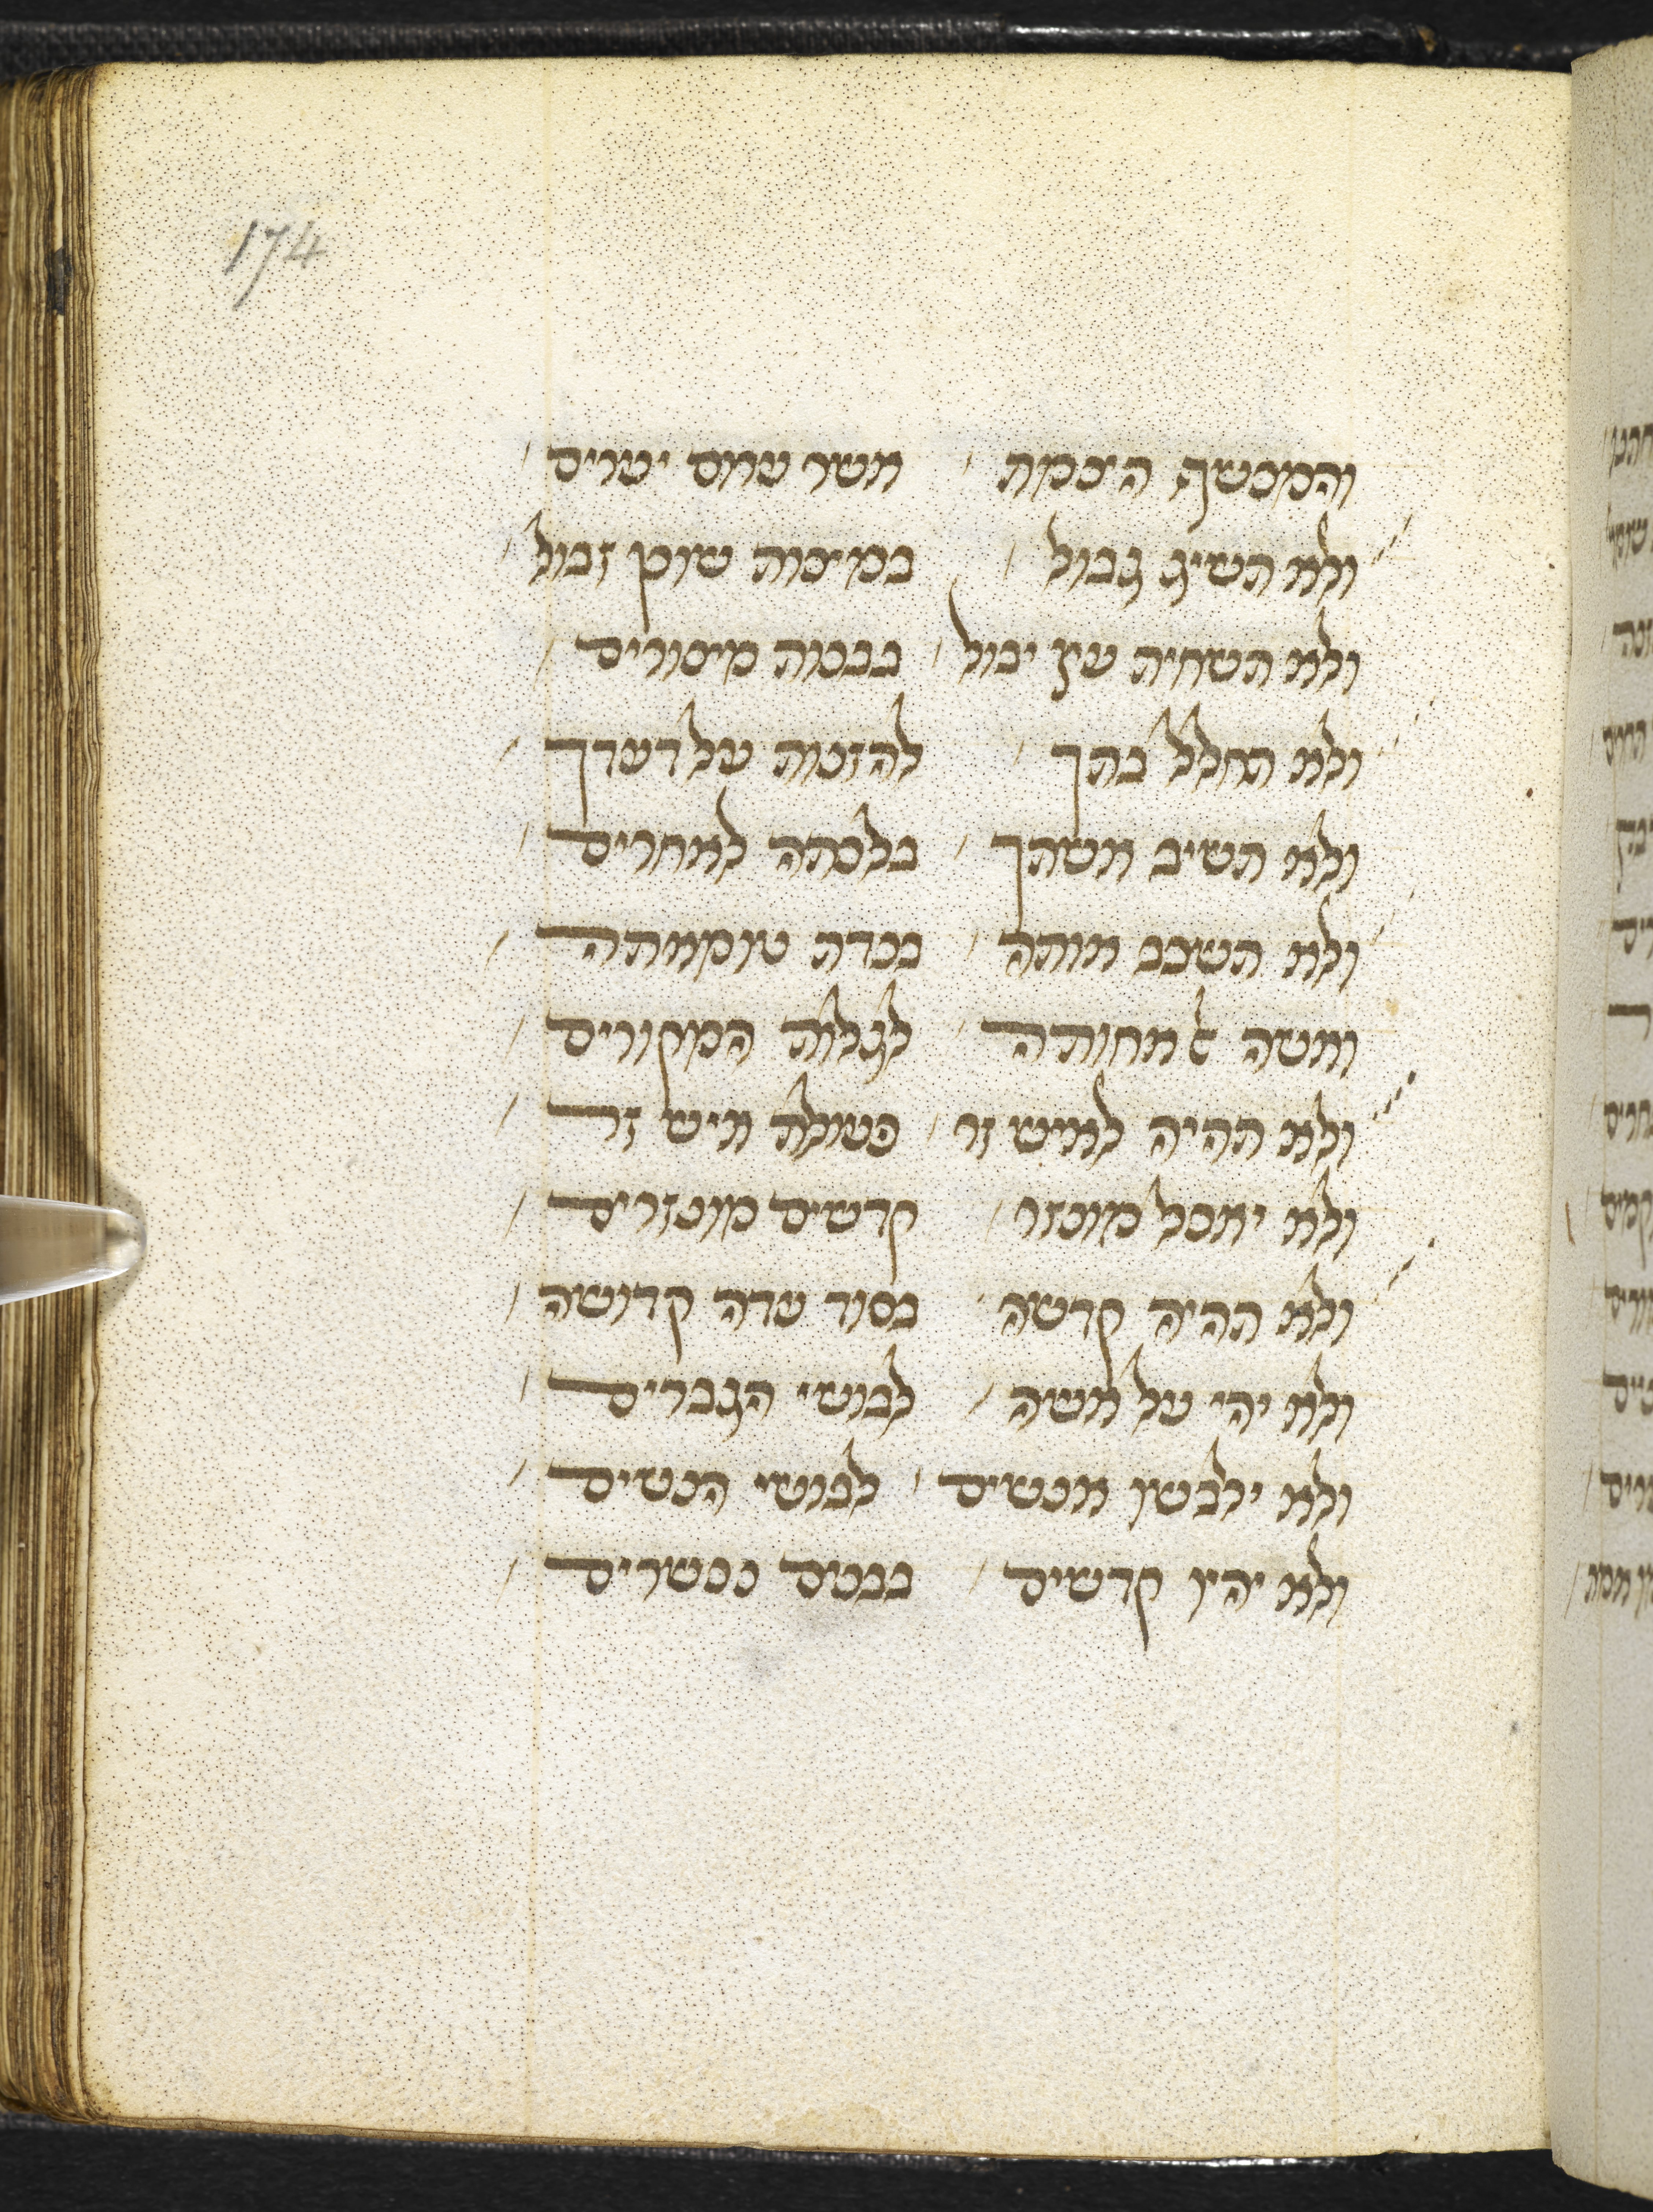 174
והמכשף הצמת / אשר עמם יערים /
ולא תשיג גבול / במצות שוכן זבול /
ולא תשחית עץ יבול / בבנות מצורים /
ולא תחלל בתך / להזנות על דעתך /
ולא תשיב אשתך / בלכתה לאחרים /
ולא תשכב אותה / בנדה טומאתה /
ואשה לאחותה / לגלות המקורים /
ולא תהיה לאיש זר / בעולת איש זר /
ולא יאכל מונזר / קדשים מונזרים /
ולא תהיה קדשה / בסוד עדה קדושה /
ולא יהי על אשה / לבושי הגברים /
ולא ילבשון אנשים / לבושי הנשים /
ולא יהיו קדשים / בבנים